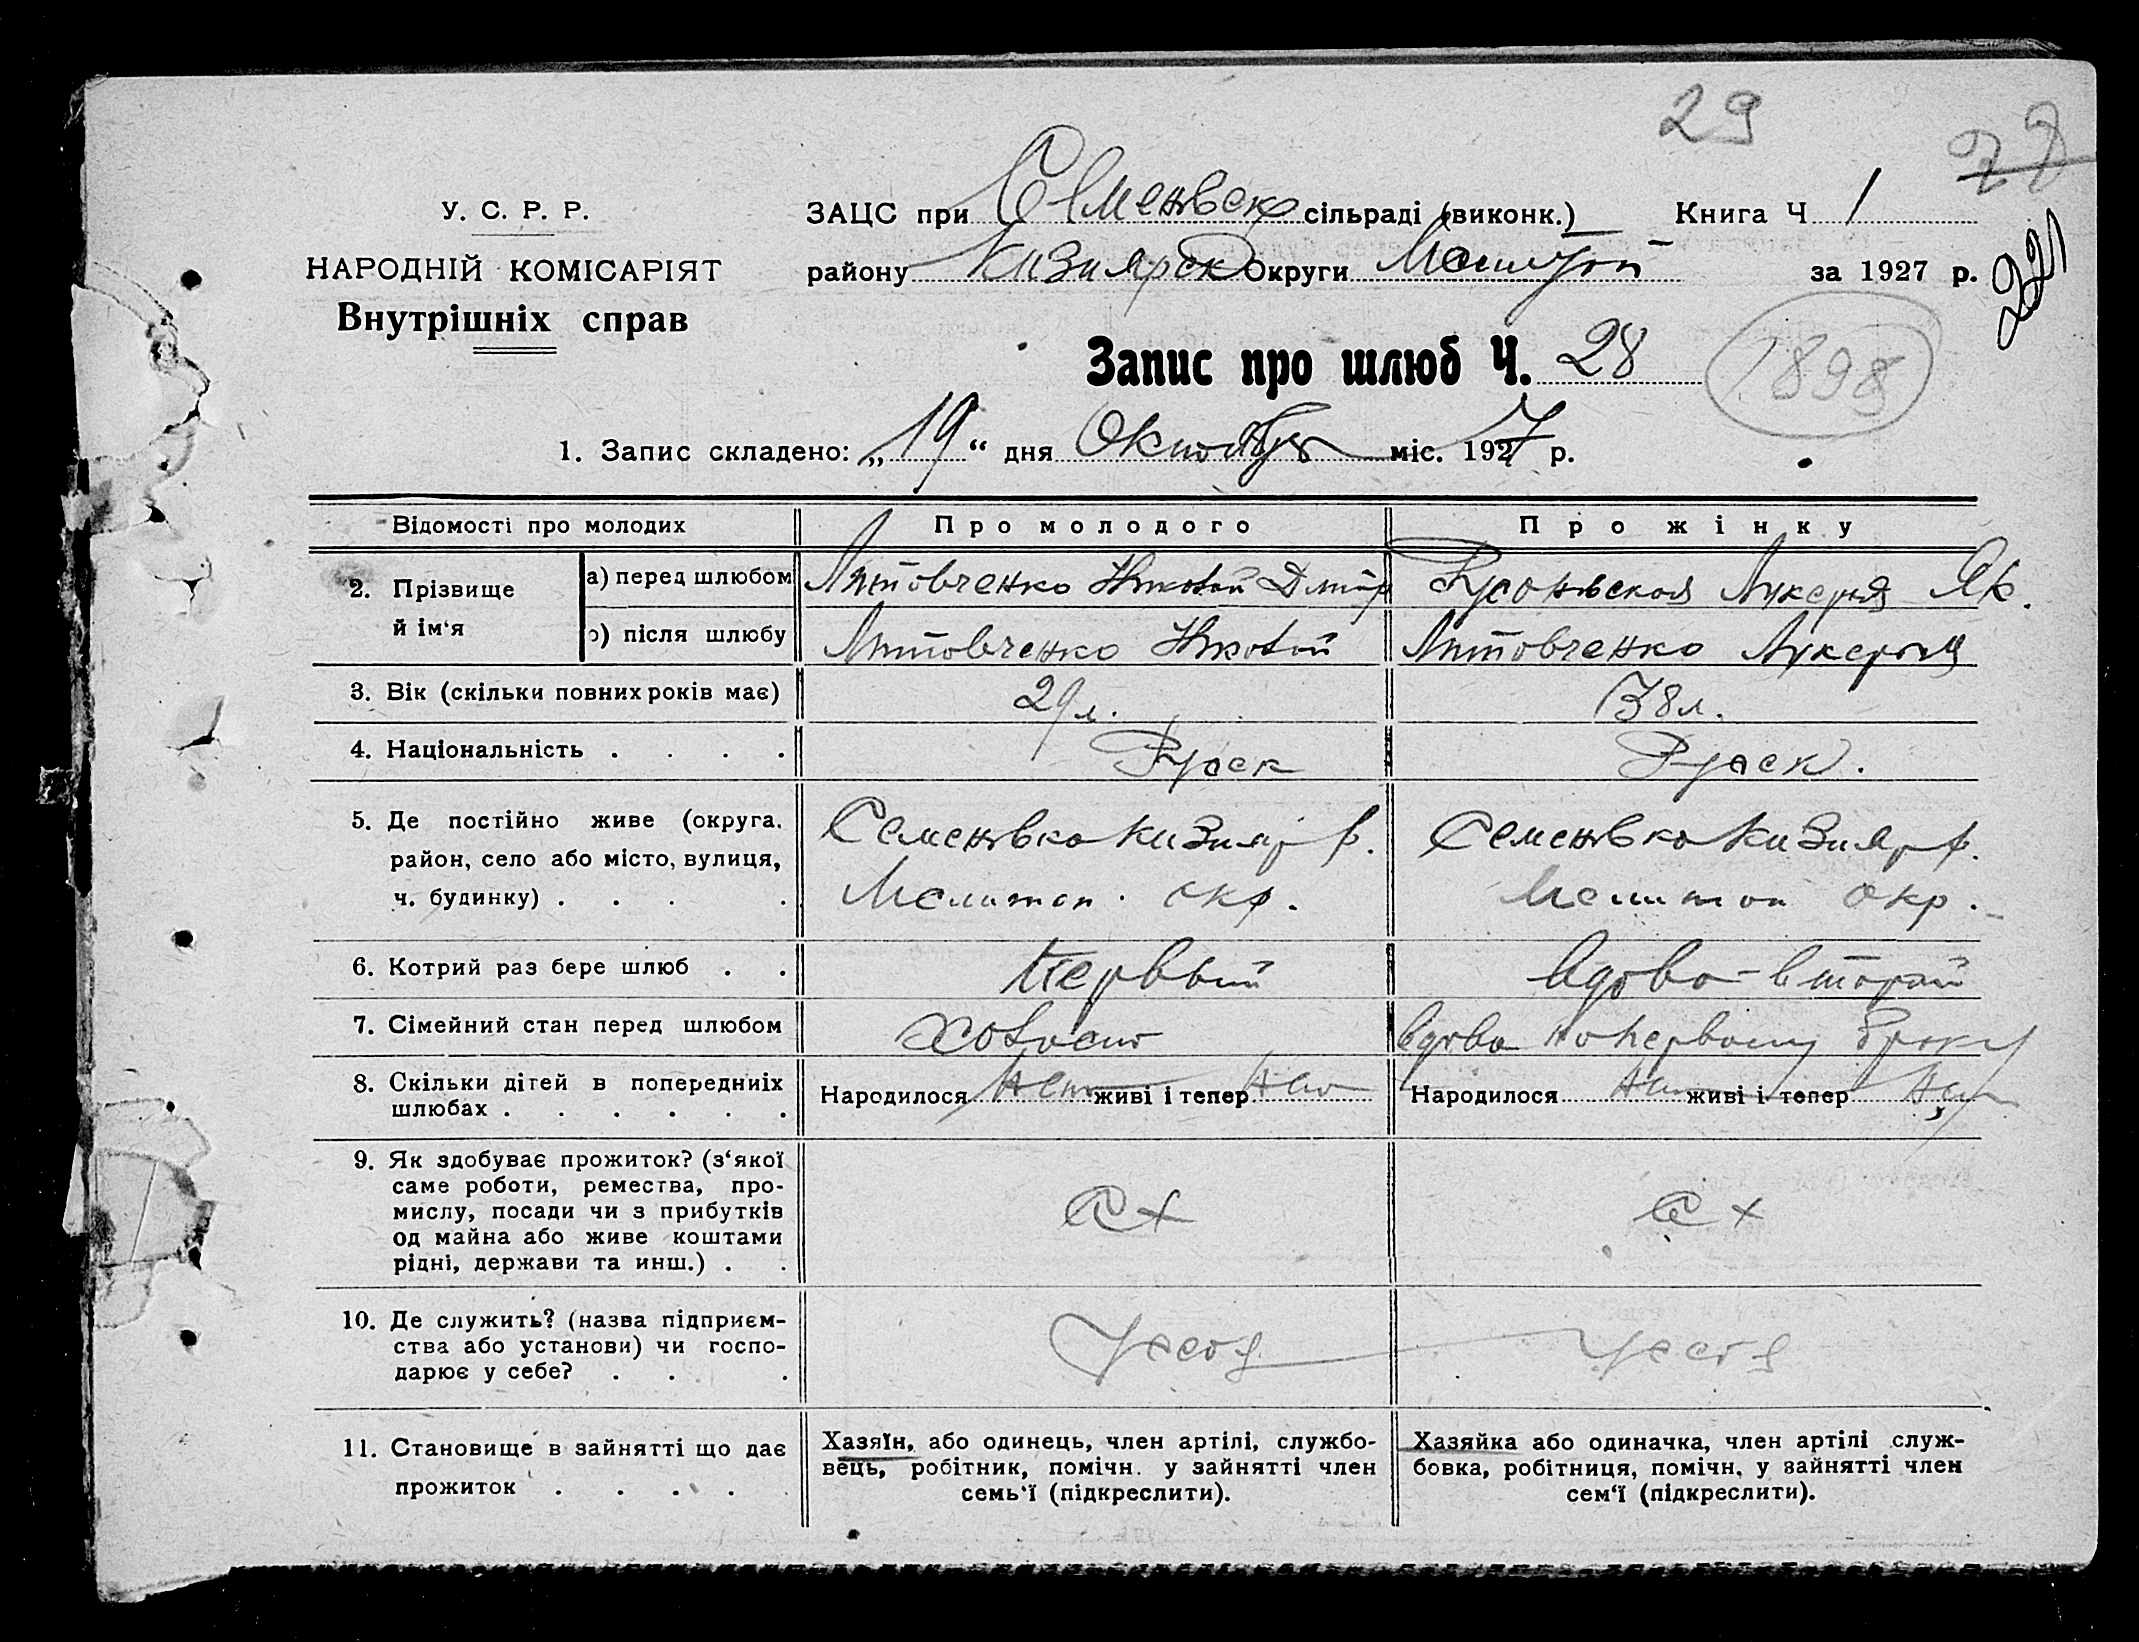 29
77
У. С. Р. Р.
НАРОДНІЙ КОМІСАРІЯТ
Внутрішніх справ
ЗАЦС при Семеновск сільраді (виконк.) Книга Ч 1
району Кизиярск Округи Мелитоп за 1927 р.
221
Запис про шлюб Ч. 28
1898
1. Запис складено: „19“ дня Октября міс. 1927 р.
Відомості про молодих Про молодого Про жінку
2. Прізвище й ім‘я
а) перед шлюбом Литовченко Николай Дмитр Лукерия Як.
б) після шлюбу Литовченко Николай Литовченко Лукерия
3. Вік (скільки повних років має) 29 л. 38 л.
4. Національність . . . . Руск Руск.
5. Де постійно живе (округа, Семеновка Кизияр р. Семеновка Кизияр р.
район, село або місто, вулиця,
ч. будинку) . . . . Мелитоп. окр. Мелитоп окр.
6. Котрий раз бере шлюб . . Первый вдова - второй
7. Сімейний стан перед шлюбом Холост вдова по первому браку
8. Скільки дітей в попередніх Народилося нет живі і тепер нет Народилося нет живі і тепер нет
шлюбах . . . . . .
9. Як здобуває прожиток? (з‘якої
саме роботи, ремества, про-
мислу, посади чи з прибутків с х с х
од майна або живе коштами
рідні, держави та инш.) . .
10. Де служить? (назва підприєм-
ства або установи) чи госпо- у себя у себя
дарює у себе? . . .
11. Становище в зайнятті що дає
прожиток . . . .
Хазяїн, або одинець, член артілі, службо-
вець, робітник, помічн. у зайнятті член
семь‘ї (підкреслити).
Хазяйка або одиначка, член артілі служ-
бовка, робітниця, помічн, у зайнятті член
сем‘ї (підкреслити).